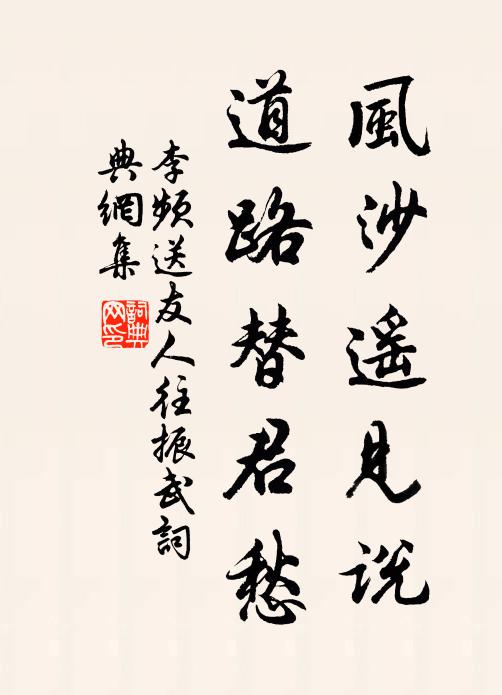 風沙遥見説
道路替君愁
李频送友人往振武詞
典網集
詞典
网印